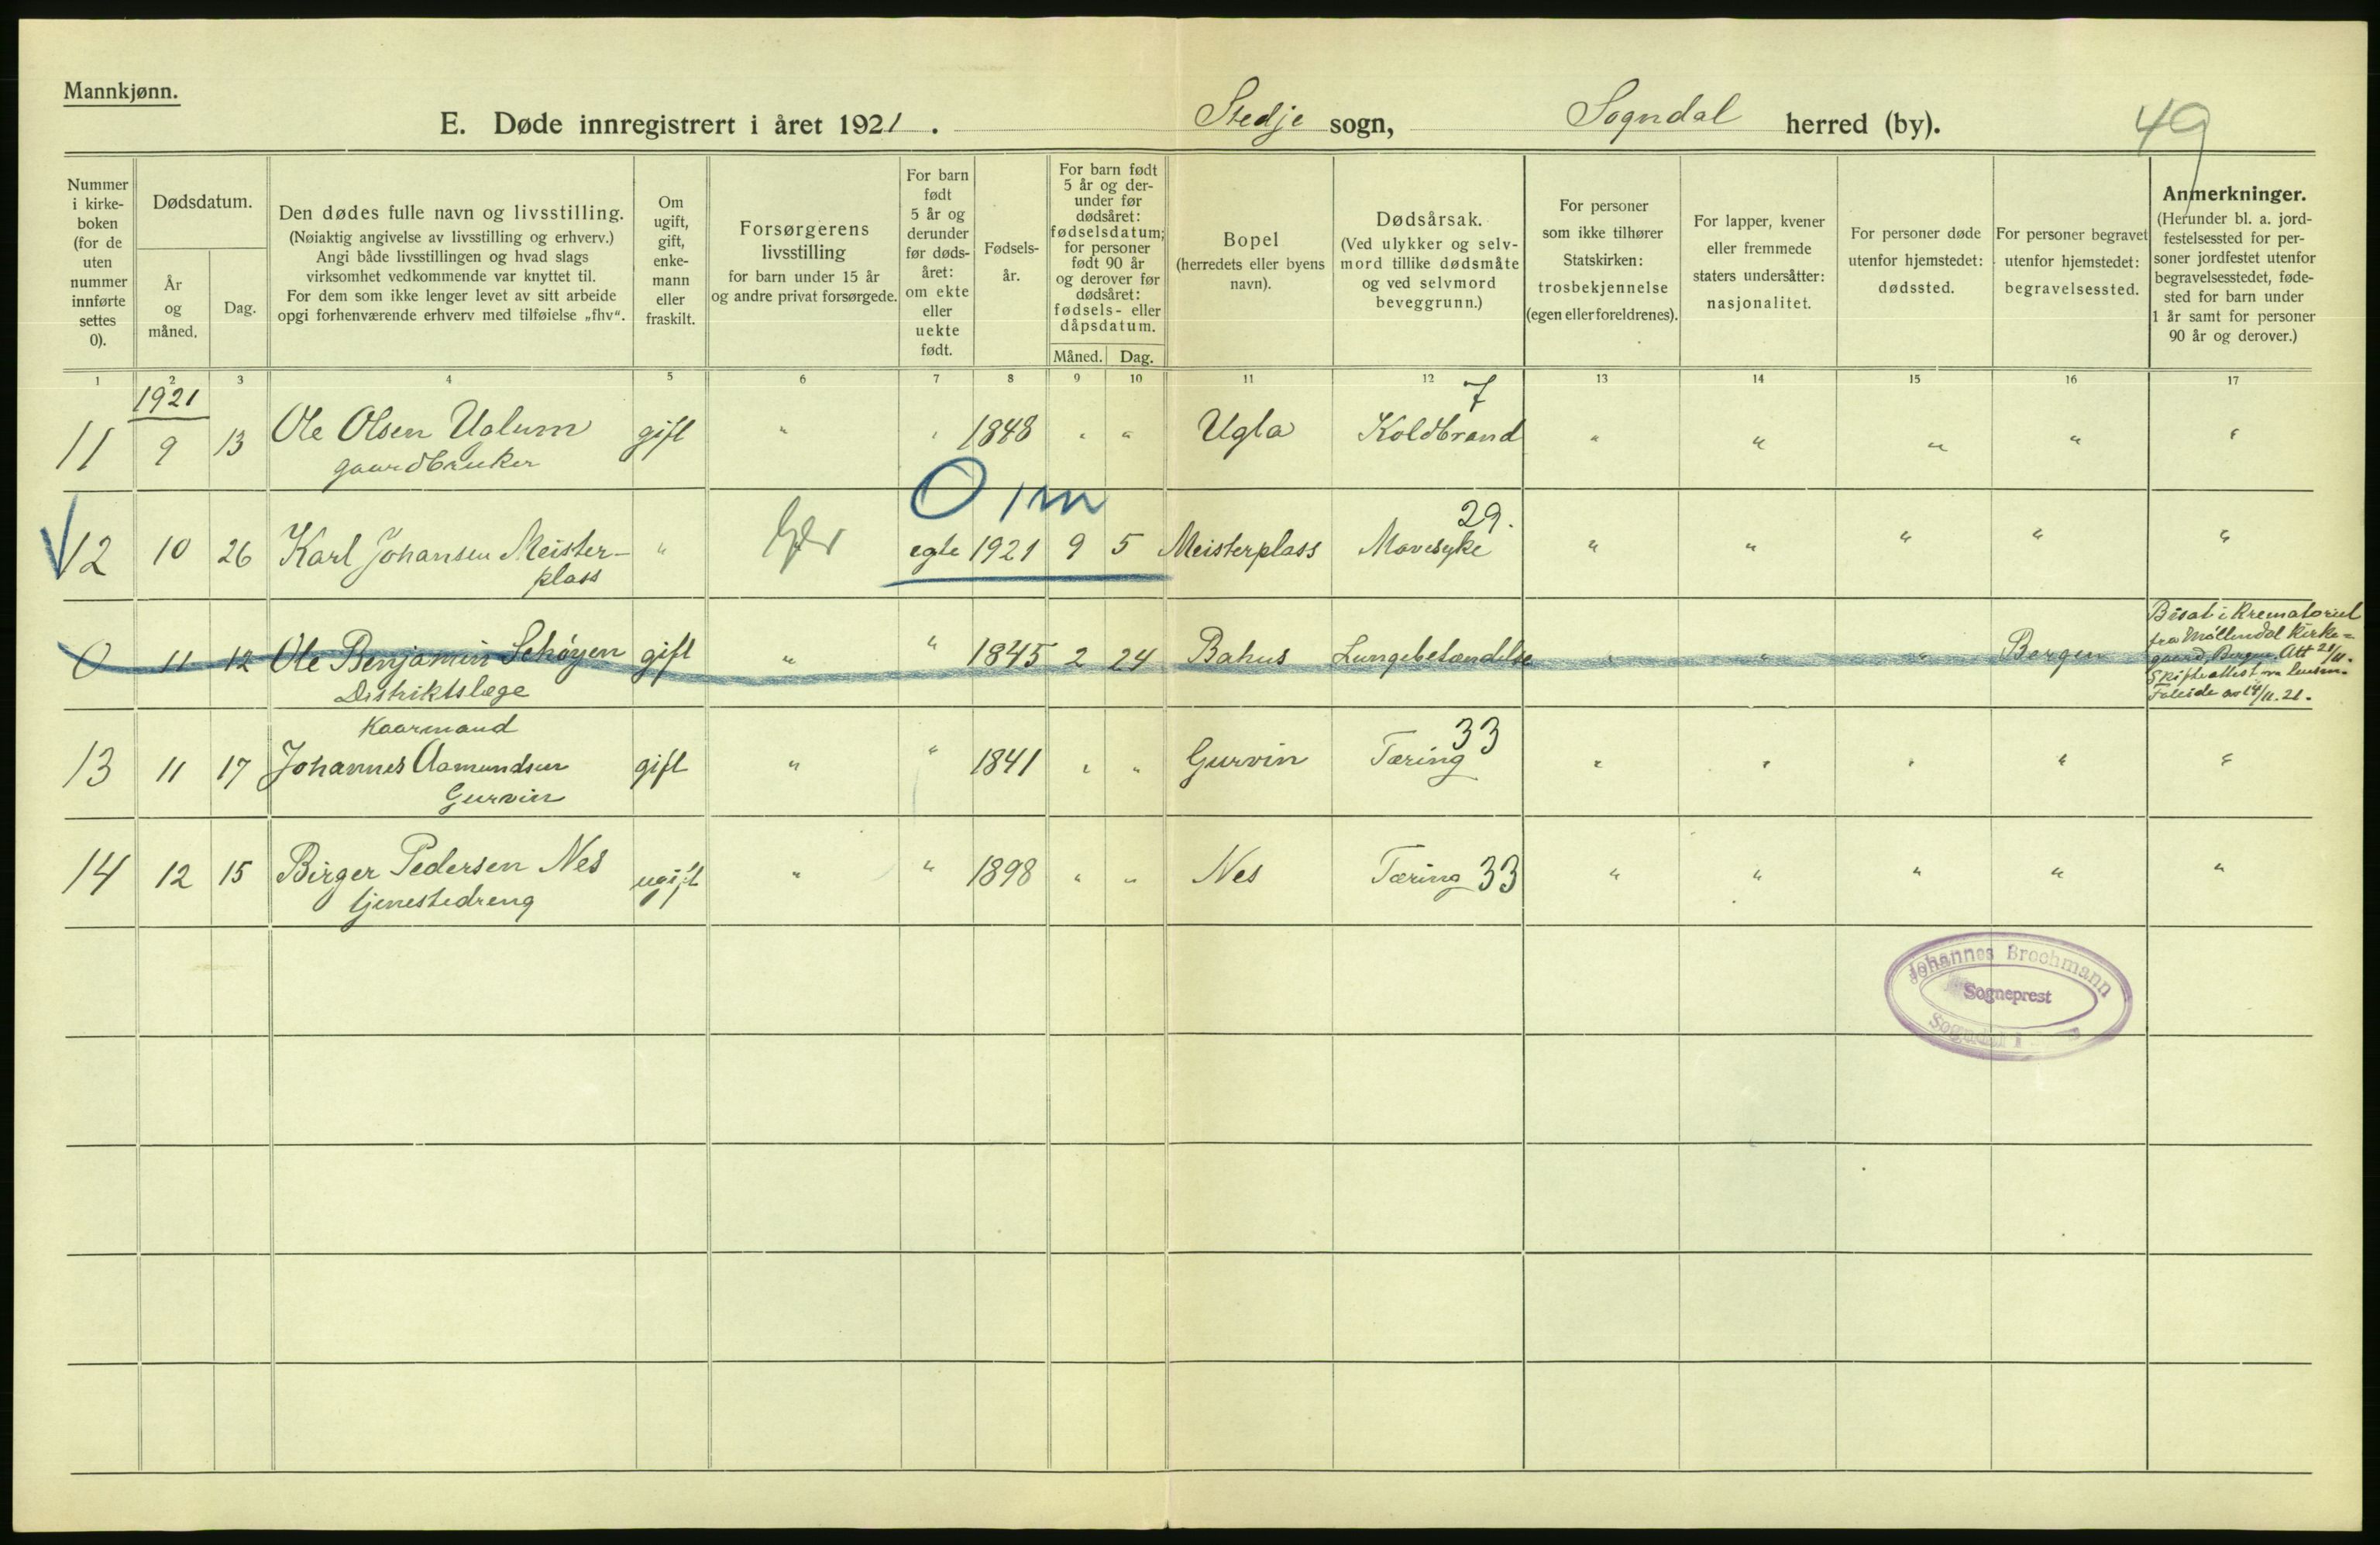 Mannkjønn.
E. Døde innregistrert i året 1921. Stedje sogn, Sogndal herred (by). 49
Nummer i kirke-boken (for de uten nummer innførte settes 0).
Dødsdatum.
År og måned.
Dag.
Den dødes fulle navn og livsstilling.
(Nøiaktig angivelse av livsstilling og erhverv.)
Angi både livsstillingen og hvad slags
virksomhet vedkommende var knyttet til.
For dem som ikke lenger levet av sitt arbeide
opgi forhenværende erhverv med tilføielse „fhv“.
Om ugift, gift, enke-mann eller fraskilt.
Forsørgerens
livsstilling
for barn under 15 år
og andre privat forsørgede.
For barn født 5 år og derunder før døds-året: om ekte eller uekte født.
Fødsels-år.
For barn født 5 år og der-under før dødsåret: fødselsdatum; for personer født 90 år og derover før dødsåret: fødsels- eller dåpsdatum.
Måned.
Dag.
Bopel
(herredets eller byens
navn).
Dødsårsak.
(Ved ulykker og selv-
mord tillike dødsmåte
og ved selvmord
beveggrunn.)
For personer
som ikke tilhører
Statskirken:
trosbekjennelse
(egen eller foreldrenes).
For lapper, kvener
eller fremmede
staters undersåtter:
nasjonalitet.
For personer døde
utenfor hjemstedet:
dødssted.
For personer begravet
utenfor hjemstedet:
begravelsessted.
Anmerkninger.
(Herunder bl. a. jord-
festelsessted for per-
soner jordfestet utenfor
begravelsesstedet, føde-
sted for barn under
1 år samt for personer
90 år og derover.)
1 2 3 4 5 6 7 8 9 10 11 12 13 14 15 16 17
1921
7
11 9 13 Ole Olsen Uglum gift " " 1848 " " Ugla Koldbrand " " " " "
gaardbruker
0 1 m
29.
12 10 26 Karl Johansen Meister- " egte 1921 9 5 Meisterplass Mavesyke " " " " "
plass
0 11 12 Ole Benjamin Schøyen gift " " 1845 2 24 Bahus Lungebetændelse " " " Bergen
Distriktslæge
Bisat i Krematoriet
fra Møllendal Kirke-
gaard, Bergen. Att 21/11.
Skifteattest
av 14/11.21.
Kaarmand
33
13 11 17 Johannes Aamundsen gift " " 1841 " " Gurvin Tæring " " " " "
Gurvin
14 12 15 Birger Pedersen Nes ugift " " 1898 " " Nes Tæring 33 " " " " "
tjenestedreng
Johannes Brochmann
Sogneprest
Sogndal i